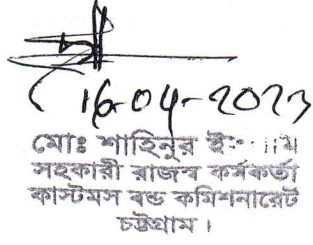 16-04-2023
মোঃ শাহিনুর
সহকারী রাজস্ব কর্মকর্তা
কাস্টমস বন্ড কমিশনারেট
চট্টগ্রাম।